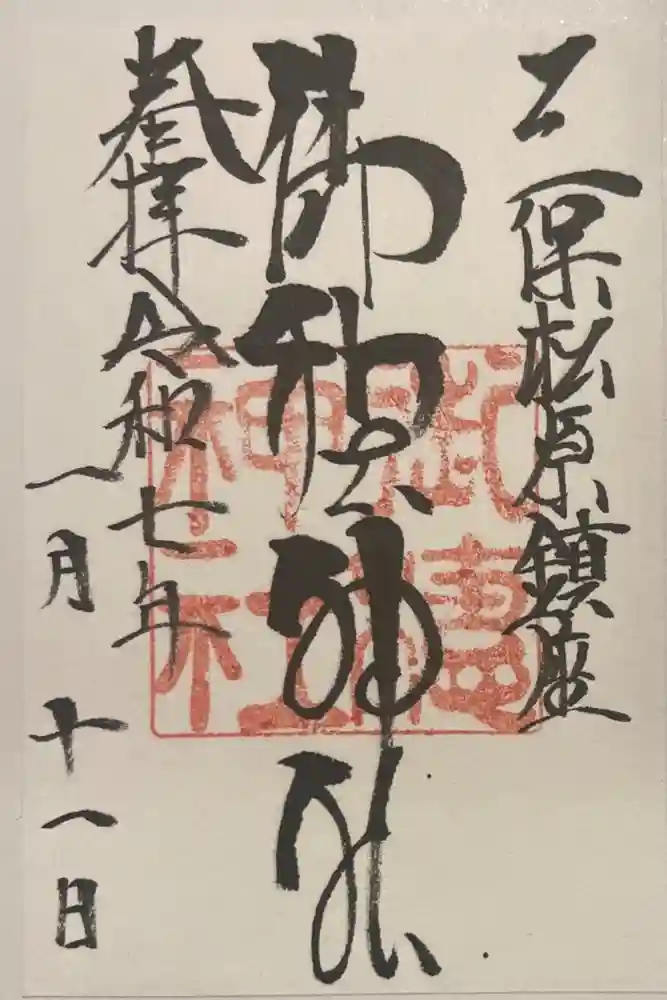 三保松原鎮座
御穂神社
奉拝 令和七年
一月十一日